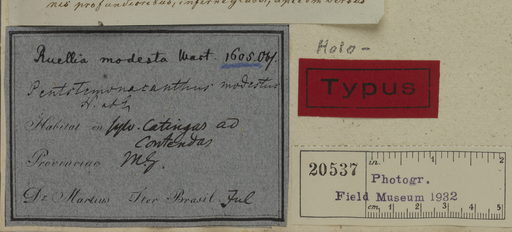 nis profundioribus, inferne glabra, apicem versus
Ruellia modesta Mart. 1605. Obs.
Pentstemonacanthus modestus
N. ab E.
Habitat in sylv. Catingas ad
Contendas
Provinciae M.G.
Dr. Martius Iter Brasil. Jul
Holo-
Typus
20537
in. 1 2
Photogr.
Field Museum 1932
cm. 1 2 3 4 5